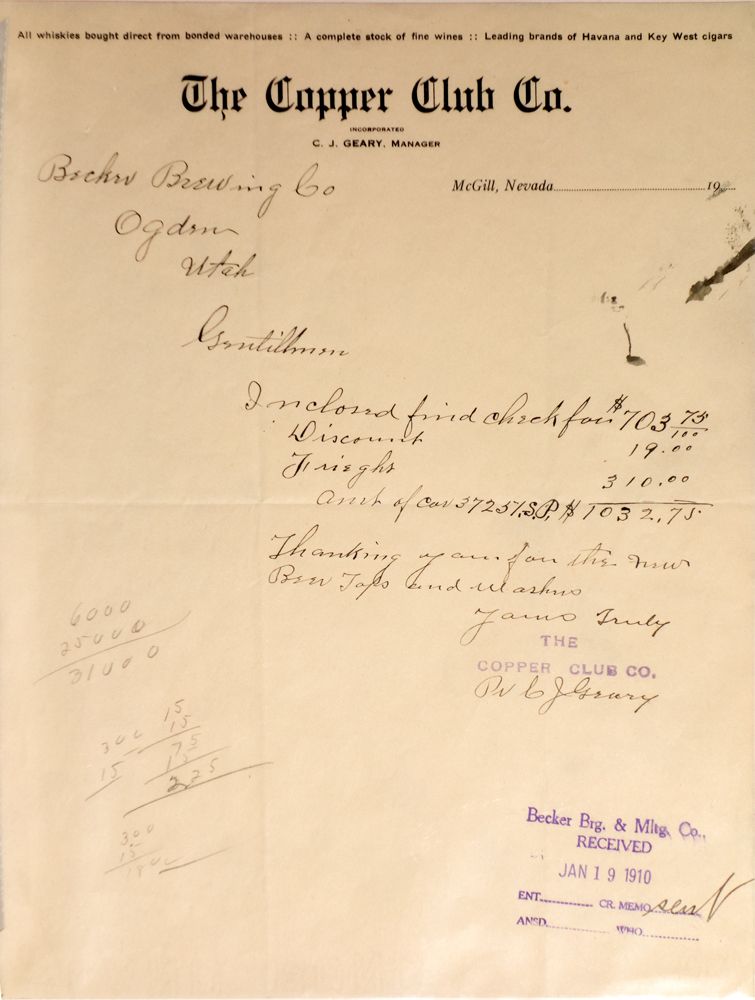 All whiskies bought direct from bonded warehouses :: A complete stock of fine wines :: Leading brands of Havana and Key West cigars
The Copper Club Co.
INCORPORATED
C. J. GEARY, MANAGER
McGill, Nevada 19
Becker Brewing Co
Ogden
Utah
Gentillmen
Inclosed find check for $703 75/100
Discount 19.00
Frieght 310.00
Amt of Car 37251.S.P. $1032.75
Thanking you for the new
Beer Taps and washers
Yours Truly
THE
COPPER CLUB CO.
Pr C J Geary
6000
25000
31000
15
15
75
15
225
300
15
300
15
Becker Brg. & Mltg. Co.,
RECEIVED
JAN 19 1910
ENT. CR. MEMO
ANSD. WHO